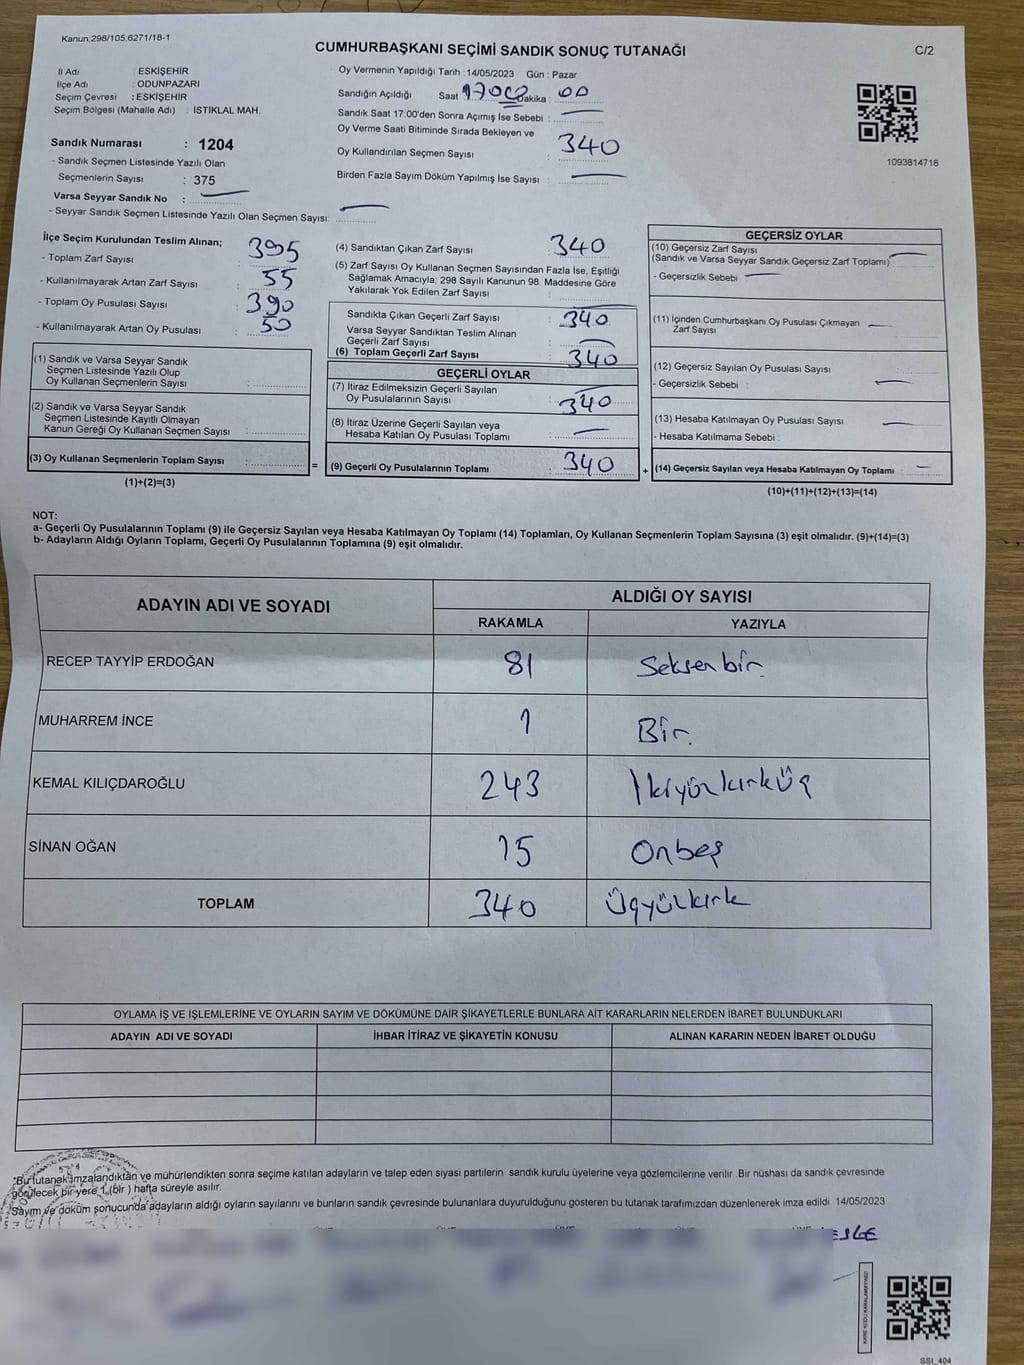 Kanun:298/105;6271/18-1
CUMHURBAŞKANI SEÇİMİ SANDIK SONUÇ TUTANAĞI
C/2
İl Adı : ESKİŞEHİR
İlçe Adı : ODUNPAZARI
Seçim Çevresi : ESKİŞEHİR
Seçim Bölgesi (Mahalle Adı) : İSTİKLAL MAH.
Sandık Numarası : 1204
- Sandık Seçmen Listesinde Yazılı Olan
Seçmenlerin Sayısı : 375
Varsa Seyyar Sandık No :
- Seyyar Sandık Seçmen Listesinde Yazılı Olan Seçmen Sayısı:
Oy Vermenin Yapıldığı Tarih :14/05/2023 Gün : Pazar
Sandığın Açıldığı Saat Dakika : 00
Sandık Saat 17:00'den Sonra Açımış İse Sebebi :
Oy Verme Saati Bitiminde Sırada Bekleyen ve
Oy Kullandırılan Seçmen Sayısı : 340
Birden Fazla Sayım Döküm Yapılmış İse Sayısı :
1093814718
İlçe Seçim Kurulundan Teslim Alınan;
- Toplam Zarf Sayısı : 395
- Kullanılmayarak Artan Zarf Sayısı : 55
- Toplam Oy Pusulası Sayısı : 390
- Kullanılmayarak Artan Oy Pusulası : 50
(1) Sandık ve Varsa Seyyar Sandık
Seçmen Listesinde Yazılı Olup
Oy Kullanan Seçmenlerin Sayısı :
(2) Sandık ve Varsa Seyyar Sandık
Seçmen Listesinde Kayıtlı Olmayan
Kanun Gereği Oy Kullanan Seçmen Sayısı :
(3) Oy Kullanan Seçmenlerin Toplam Sayısı :
(1)+(2)=(3)
(4) Sandıktan Çıkan Zarf Sayısı : 340
(5) Zarf Sayısı Oy Kullanan Seçmen Sayısından Fazla İse, Eşitliği
Sağlamak Amacıyla, 298 Sayılı Kanunun 98. Maddesine Göre
Yakılarak Yok Edilen Zarf Sayısı :
Sandıkta Çıkan Geçerli Zarf Sayısı : 340
Varsa Seyyar Sandıktan Teslim Alınan
Geçerli Zarf Sayısı :
(6) Toplam Geçerli Zarf Sayısı : 340
GEÇERLİ OYLAR
(7) İtiraz Edilmeksizin Geçerli Sayılan
Oy Pusulalarının Sayısı : 340
(8) İtiraz Üzerine Geçerli Sayılan veya
Hesaba Katılan Oy Pusulası Toplamı :
= (9) Geçerli Oy Pusulalarının Toplamı : 340
GEÇERSİZ OYLAR
(10) Geçersiz Zarf Sayısı
(Sandık ve Varsa Seyyar Sandık Geçersiz Zarf Toplamı) :
- Geçersizlik Sebebi :
(11) İçinden Cumhurbaşkanı Oy Pusulası Çıkmayan
Zarf Sayısı :
(12) Geçersiz Sayılan Oy Pusulası Sayısı :
- Geçersizlik Sebebi :
(13) Hesaba Katılmayan Oy Pusulası Sayısı :
- Hesaba Katılmama Sebebi :
+ (14) Geçersiz Sayılan veya Hesaba Katılmayan Oy Toplamı :
(10)+(11)+(12)+(13)=(14)
NOT:
a- Geçerli Oy Pusulalarının Toplamı (9) ile Geçersiz Sayılan veya Hesaba Katılmayan Oy Toplamı (14) Toplamları, Oy Kullanan Seçmenlerin Toplam Sayısına (3) eşit olmalıdır. (9)+(14)=(3)
b- Adayların Aldığı Oyların Toplamı, Geçerli Oy Pusulalarının Toplamına (9) eşit olmalıdır.
ADAYIN ADI VE SOYADI ALDIĞI OY SAYISI
RAKAMLA YAZIYLA
RECEP TAYYİP ERDOĞAN 81 Seksenbir
MUHARREM İNCE 1 Bir.
KEMAL KILIÇDAROĞLU 243 İkiyüzkırküç
SİNAN OĞAN 15 Onbeş
TOPLAM 340 Üçyüzkırk
OYLAMA İŞ VE İŞLEMLERİNE VE OYLARIN SAYIM VE DÖKÜMÜNE DAİR ŞİKAYETLERLE BUNLARA AİT KARARLARIN NELERDEN İBARET BULUNDUKLARI
ADAYIN ADI VE SOYADI İHBAR İTİRAZ VE ŞİKAYETİN KONUSU ALINAN KARARIN NEDEN İBARET OLDUĞU
*Bu tutanak imzalandıktan ve mühürlendikten sonra seçime katılan adayların ve talep eden siyasi partilerin sandık kurulu üyelerine veya gözlemcilerine verilir. Bir nüshası da sandık çevresinde
görülecek bir yere 1 (bir ) hafta süreyle asılır.
Sayım ve döküm sonucunda adayların aldığı oyların sayılarını ve bunların sandık çevresinde bulunanlara duyurulduğunu gösteren bu tutanak tarafımızdan düzenlenerek imza edildi. 14/05/2023
SSI_404